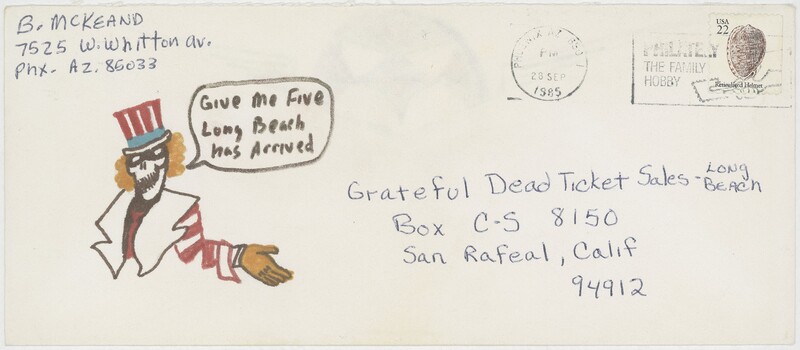 B. McKEAND
7525 W. Whitton av.
Phx. AZ. 85033
Give Me Five
Long Beach
has Arrived
PM
28 SEP
1985
PHILATELY
THE FAMILY
HOBBY
USA
22
Reticulated Helmet
Grateful Dead Ticket Sales - LONG
BEACH
Box C-S 8150
San Rafeal, Calif
94912